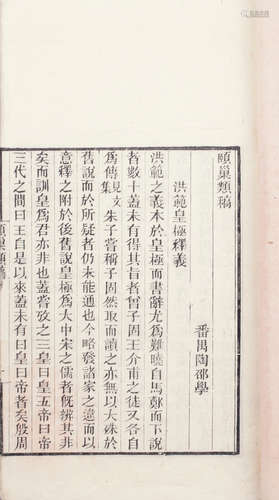 頤巢類稿
番禺陶邵學
洪範皇極釋義
洪範之義本於皇極而書辭尤爲難曉自馬鄭而下說
者數十蓋未有得其旨者曾子固王介甫之徒又各自
爲傳見文集朱子嘗稱子固然取而讀之亦無以大殊於
舊說而於所疑者仍未能通也今略發諸家之違而以
意釋之附於後舊說皇極爲大中宋之儒者旣辨其非
矣而訓皇爲君亦非也蓋嘗攷之三皇曰皇五帝曰帝
三代之間曰王自是以來蓋未有曰皇曰帝者矣般周
頤巢類稿